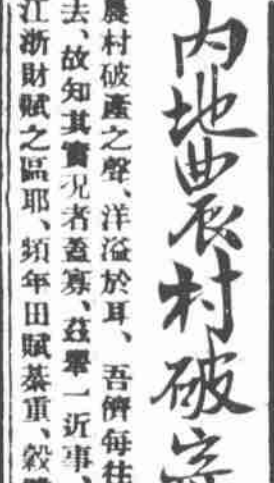 内地農村破產
農村破產之聲、洋溢於耳、吾儕每往
去、故知其實况者蓋寡、茲舉一近事、
江浙財賦之區耶、頻年田賦綦重、穀